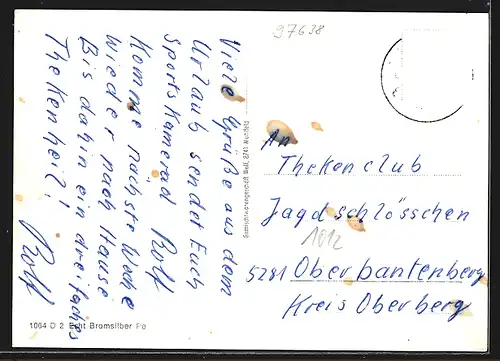 Viele Grüße aus dem
Urlaub sendet Euch
Sportskamerad Rolf
Komme nächste Woche
wieder nach Hause
Bis dahin ein dreifaches
Theken heil!
Rolf
97638
An
Thekenclub
Jagdschlösschen
1012
5281 Oberbantenberg
Kreis Oberberg
1064 D 2 Echt Bromsilber